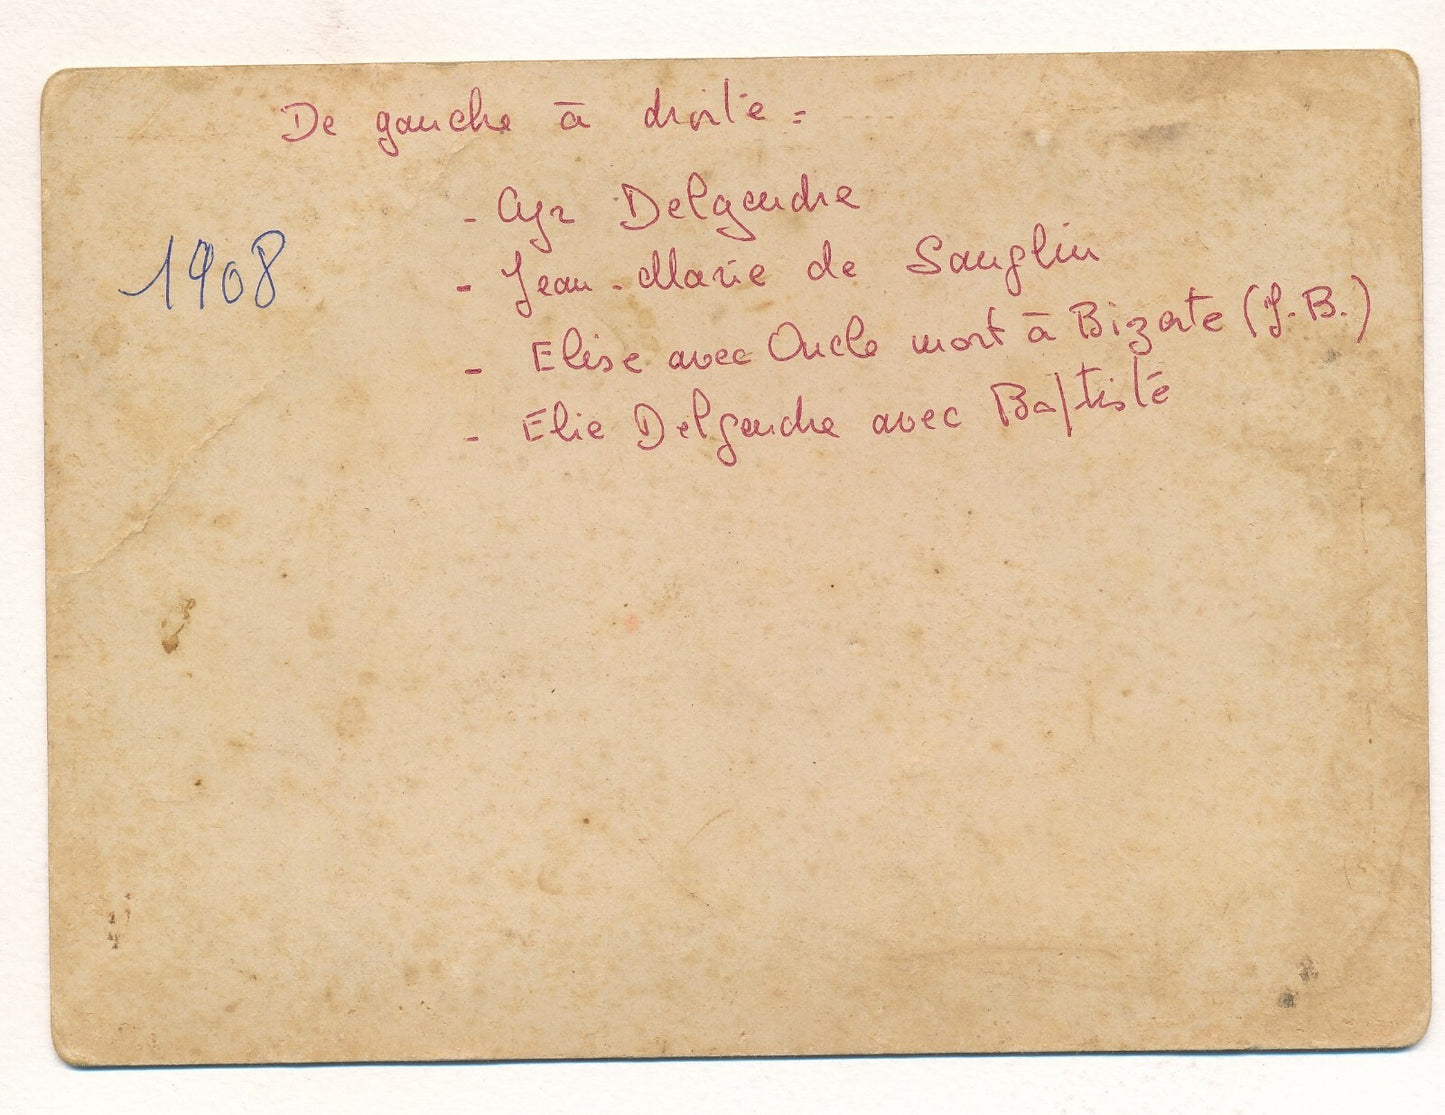 De gauche à droite =
- Cyr Delgendre
1908
- Jean-Marie de Sauglin
- Elise avec Oncle mort à Bizerte (J.B.)
- Elie Delgendre avec Baptiste